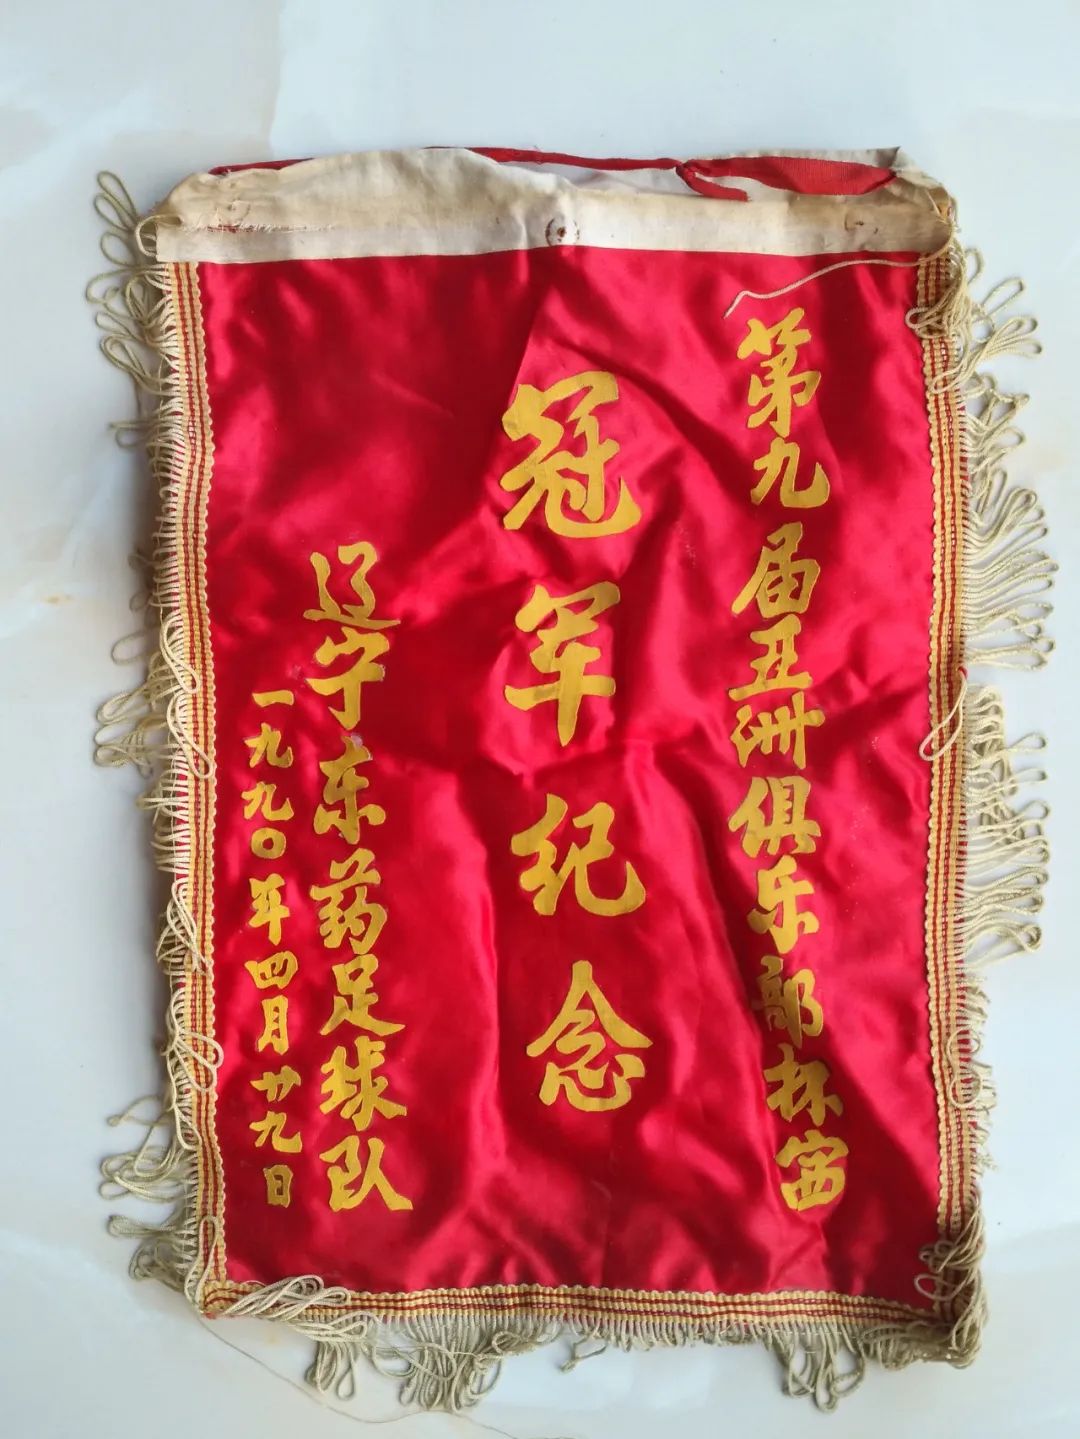 第九届亚洲俱乐部杯赛
冠军纪念
辽宁东药足球队
一九九〇年四月廿九日